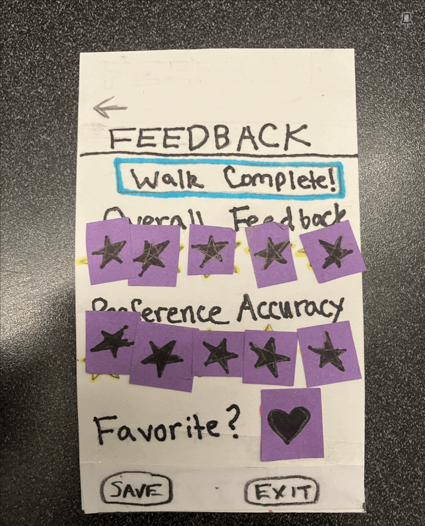 FEEDBACK
Walk Complete!
Overall Feedback
Preference Accuracy
Favorite?
SAVE EXIT